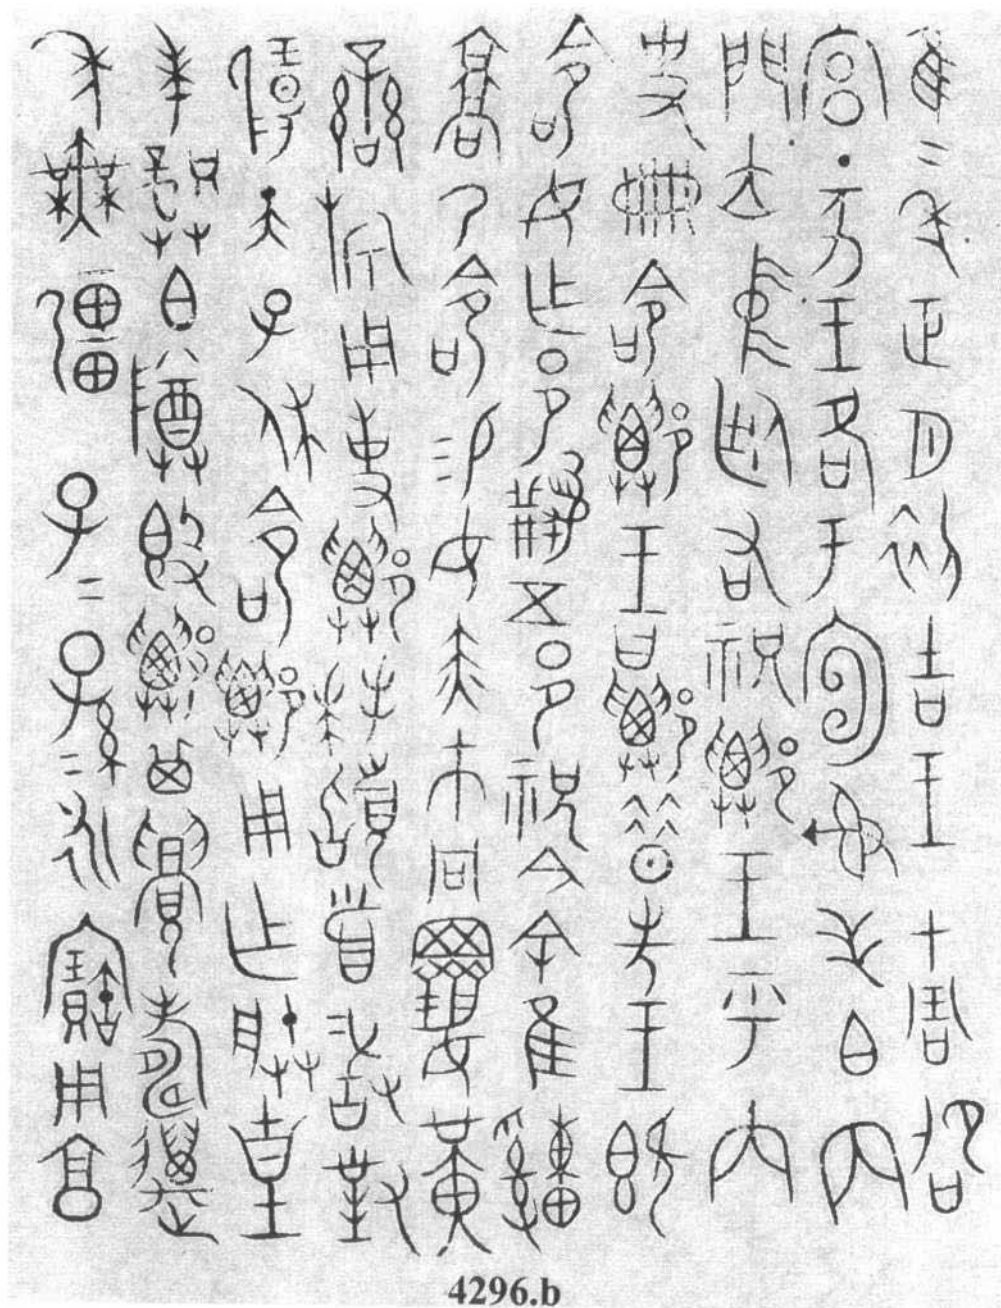 隹二年正月初吉王才周邵
宮丁亥王各于宣射毛白內
門立中廷右祝王乎內
史冊命王曰昔先王既
命女乍邑五邑祝今余隹
乃命易女赤巿冋黃
䜌旂用事拜首敢對
揚天子休命用乍朕皇
考龏白尊簋其眉壽萬
年無彊子=孫=永寶用享
4296.b